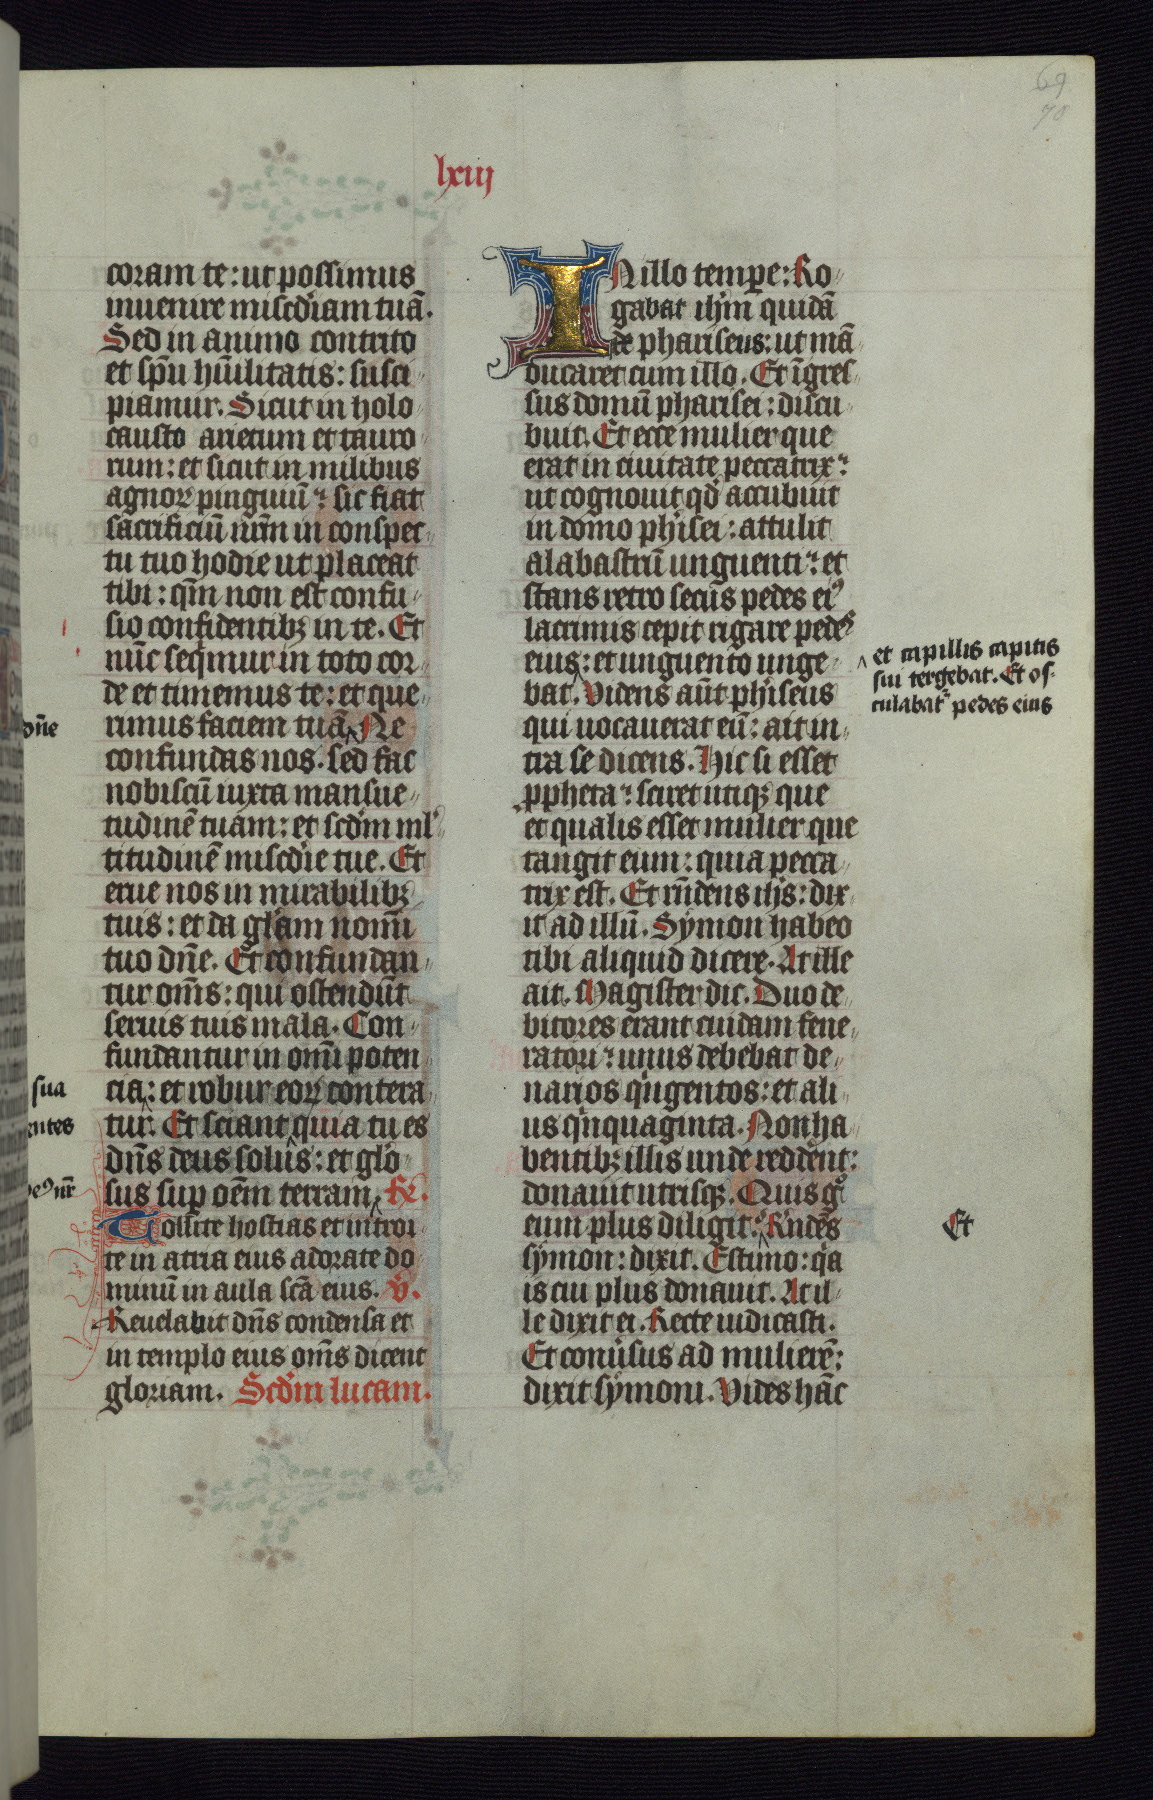 69
70
lxiij
coram te: ut possimus
inuenire misc̄diam tuā.
Sed in animo contrito
et sp̄u hūilitatis: susci
piamur. Sicut in holo
causto arietum et tauro
rum: et sicut in milibus
agnoꝝ pinguiū: sic fiat
sacrificiū nr̄m in conspec
tu tuo hodie ut placeat
tibi: qm̄ non est confu
sio confidentibꝫ in te. Et
nūc seqimur in toto cor
de et timemus te: et que
rimus faciem tuā ‸ Ne
dn̄e
confundas nos. sed fac
nobiscū iuxta mansue
tudinē tuam: et scd̄m ml
titudinē misc̄die tue. Et
erue nos in mirabilibꝫ
tuis: et da gl̄am nomī
tuo dn̄e. Et confundan
tur om̄s: qui ostendūt
seruis tuis mala. Con
fundantur in om̄i poten
cia‸: et robur eoꝝ contera
sua
tur. Et sciant ‸ quia tu es
entes
dn̄s deus solus: et glo
sus sup oēm terram ‸ ꝶ.
nr̄
Tollite hostias et introi
te in atria eius adorate do
minū in aula scā eius. ꝟ.
Reuelabit dn̄s condensa et
in templo eius om̄s dicent
gloriam. Scd̄m lucam.
IN illo tempe: Ro
gabat ih̄m quidā
de phariseus: ut mā
ducaret cum illo. Et īgres
sus domū pharisei: discu
buit. Et ecce mulier que
erat in ciuitate peccatrix:
ut cognouit qd̄ accubuit
in domo ph̄isei: attulit
alabastrū unguenti: et
stans retro secus pedes eiꝰ
lacrimis cepit rigare pedes
eius: et unguento unge
bat. ‸ Videns aūt ph̄iseus
‸ et capillis capitis
sui tergebat. Et os
culabat̄ pedes eius
qui uocauerat eū: ait in
tra se dicens. Hic si esset
ꝓpheta: sciret utiqꝫ que
et qualis esset mulier que
tangit eum: quia pecca
trix est. Et rn̄dens ih̄s: dix
it ad illū. Symon habeo
tibi aliquid dicere. At ille
ait. Magister dic. Duo de
bitores erant cuidam fene
ratori: unus debebat de
narios qingentos: et ali
us qinquaginta. Non ha
bentibꝫ illis unde reddent:
donauit utrisqꝫ. Quis go
eum plus diligit. ‸ Rn̄dēs
Et
symon: dixit. Estimo: qa
is cui plus donauit. At il
le dixit ei. Recte iudicasti.
Et conūsus ad mulierē:
dixit symoni. Vides hāc